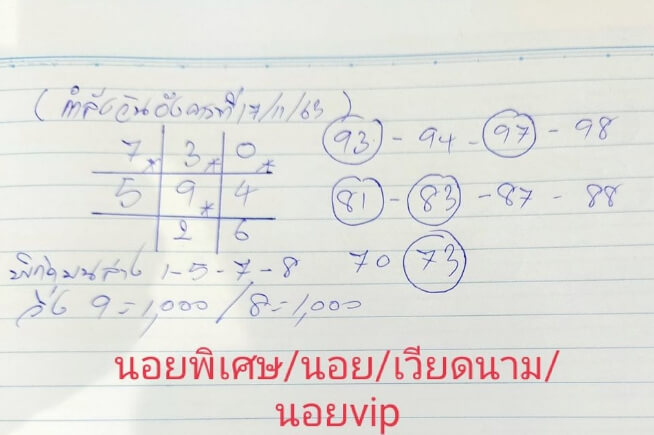 (กำลังวันอังคารที่ 17/11/63)
7 3 0
5 9 4
2 6
93 - 94 - 97 - 98
81 - 83 - 87 - 88
70 73
บนล่าง 1-5-7-8
วิ่ง 9=1,000 / 8=1,000
นอยพิเศษ/นอย/เวียดนาม/
นอยvip